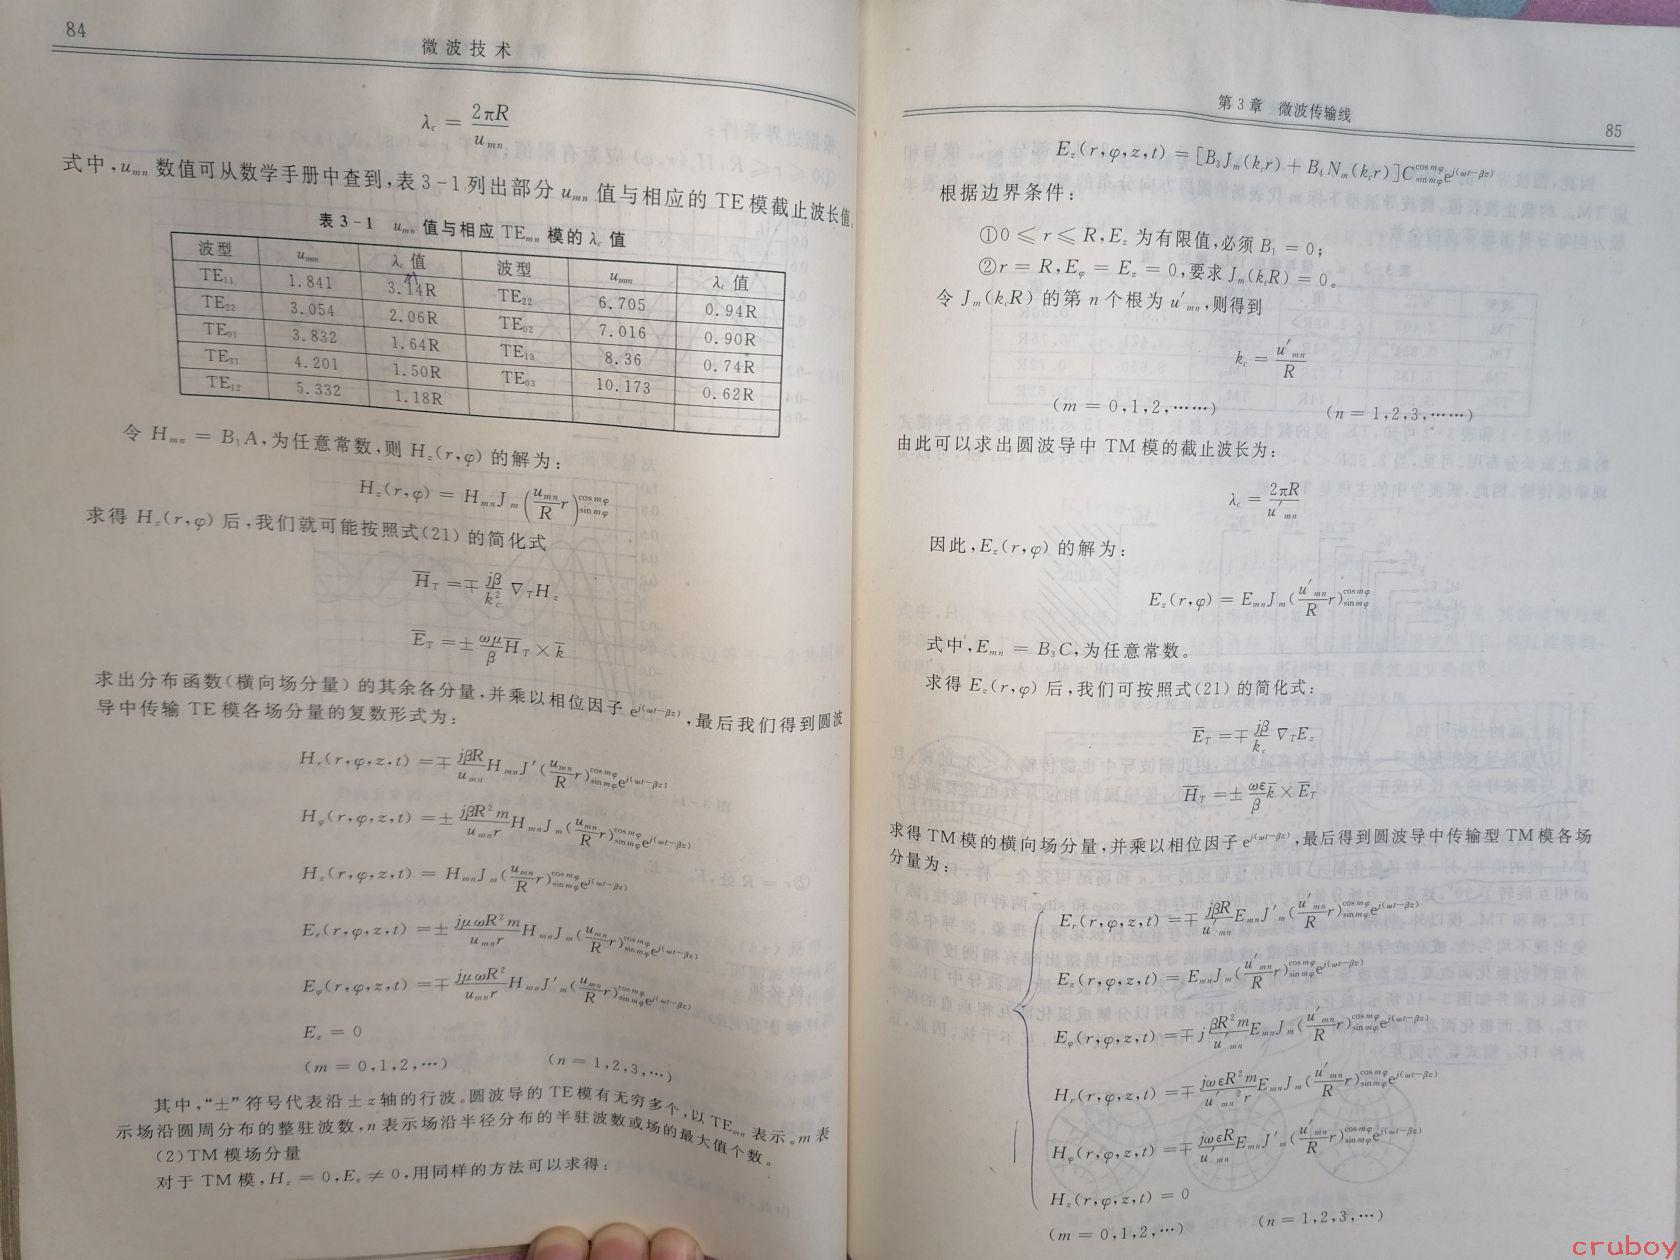 84
微波技术
λc = 2πR / umn
式中,umn 数值可从数学手册中查到,表 3-1 列出部分 umn 值与相应的 TE 模截止波长值
表 3-1 umn 值与相应 TEmn 模的 λc 值
波型 umn λc 值 波型 umn λc 值
TE11 1.841 3.14R TE22 6.705 0.94R
TE22 3.054 2.06R TE02 7.016 0.90R
TE01 3.832 1.64R TE13 8.36 0.74R
TE31 4.201 1.50R TE03 10.173 0.62R
TE12 5.332 1.18R
令 Hmn = B1A,为任意常数,则 Hz(r,φ) 的解为:
Hz(r,φ) = HmnJm(umn/R r) cos mφ sin mφ
求得 Hz(r,φ) 后,我们就可能按照式(21) 的简化式
H̅T = ∓ jβ/kc² ∇THz
E̅T = ± ωμ/β H̅T × k̅
求出分布函数(横向场分量)的其余各分量,并乘以相位因子 e^j(ωt−βz),最后我们得到圆波
导中传输 TE 模各场分量的复数形式为:
Hr(r,φ,z,t) = ∓ jβR/umn HmnJ′(umn/R r) cos mφ sin mφ e^j(ωt−βz)
Hφ(r,φ,z,t) = ± jβR²m/umnr HmnJm(umn/R r) cos mφ sin mφ e^j(ωt−βz)
Hz(r,φ,z,t) = HmnJm(umn/R r) cos mφ sin mφ e^j(ωt−βz)
Er(r,φ,z,t) = ± jμωR²m/umnr HmnJm(umn/R r) cos mφ sin mφ e^j(ωt−βz)
Eφ(r,φ,z,t) = ∓ jμωR²/umnr HmnJ′m(umn/R r) cos mφ sin mφ e^j(ωt−βz)
Ez = 0
(m = 0,1,2,…) (n = 1,2,3,…)
其中,“±”符号代表沿 ±z 轴的行波。圆波导的 TE 模有无穷多个,以 TEmn 表示。m 表
示场沿圆周分布的整驻波数,n 表示场沿半径分布的半驻波数或场的最大值个数。
(2)TM 模场分量
对于 TM 模,Hz = 0,Ez ≠ 0,用同样的方法可以求得:
第 3 章 微波传输线
85
Ez(r,φ,z,t) = [B3Jm(kcr) + B4Nm(kcr)]C cos mφ sin mφ e^j(ωt−βz)
根据边界条件:
①0 ≤ r ≤ R,Ez 为有限值,必须 B4 = 0;
②r = R,Eφ = Ez = 0,要求 Jm(kcR) = 0。
令 Jm(kcR) 的第 n 个根为 u′mn,则得到
kc = u′mn / R
(m = 0,1,2,……) (n = 1,2,3,……)
由此可以求出圆波导中 TM 模的截止波长为:
λc = 2πR / u′mn
因此,Ez(r,φ) 的解为:
Ez(r,φ) = EmnJm(u′mn/R r) cos mφ sin mφ
式中,Emn = B3C,为任意常数。
求得 Ez(r,φ) 后,我们可按照式(21) 的简化式:
E̅T = ∓ jβ/kc ∇TEz
H̅T = ± ωε/β k̅ × E̅T
求得 TM 模的横向场分量,并乘以相位因子 e^j(ωt−βz),最后得到圆波导中传输型 TM 模各场
分量为:
Er(r,φ,z,t) = ∓ jβR/u′mn EmnJ′m(u′mn/R r) cos mφ sin mφ e^j(ωt−βz)
Ez(r,φ,z,t) = EmnJm(u′mn/R r) cos mφ sin mφ e^j(ωt−βz)
Eφ(r,φ,z,t) = ∓ j βR²m/u′mn EmnJm(u′mn/R r) cos mφ sin mφ e^j(ωt−βz)
Hr(r,φ,z,t) = ∓ jωεR²m/u′mn²r EmnJm(u′mn/R r) cos mφ sin mφ e^j(ωt−βz)
Hφ(r,φ,z,t) = ∓ jωεR/u′mn EmnJ′m(u′mn/R r) cos mφ sin mφ e^j(ωt−βz)
Hz(r,φ,z,t) = 0
(m = 0,1,2,…) (n = 1,2,3,…)
cruboy